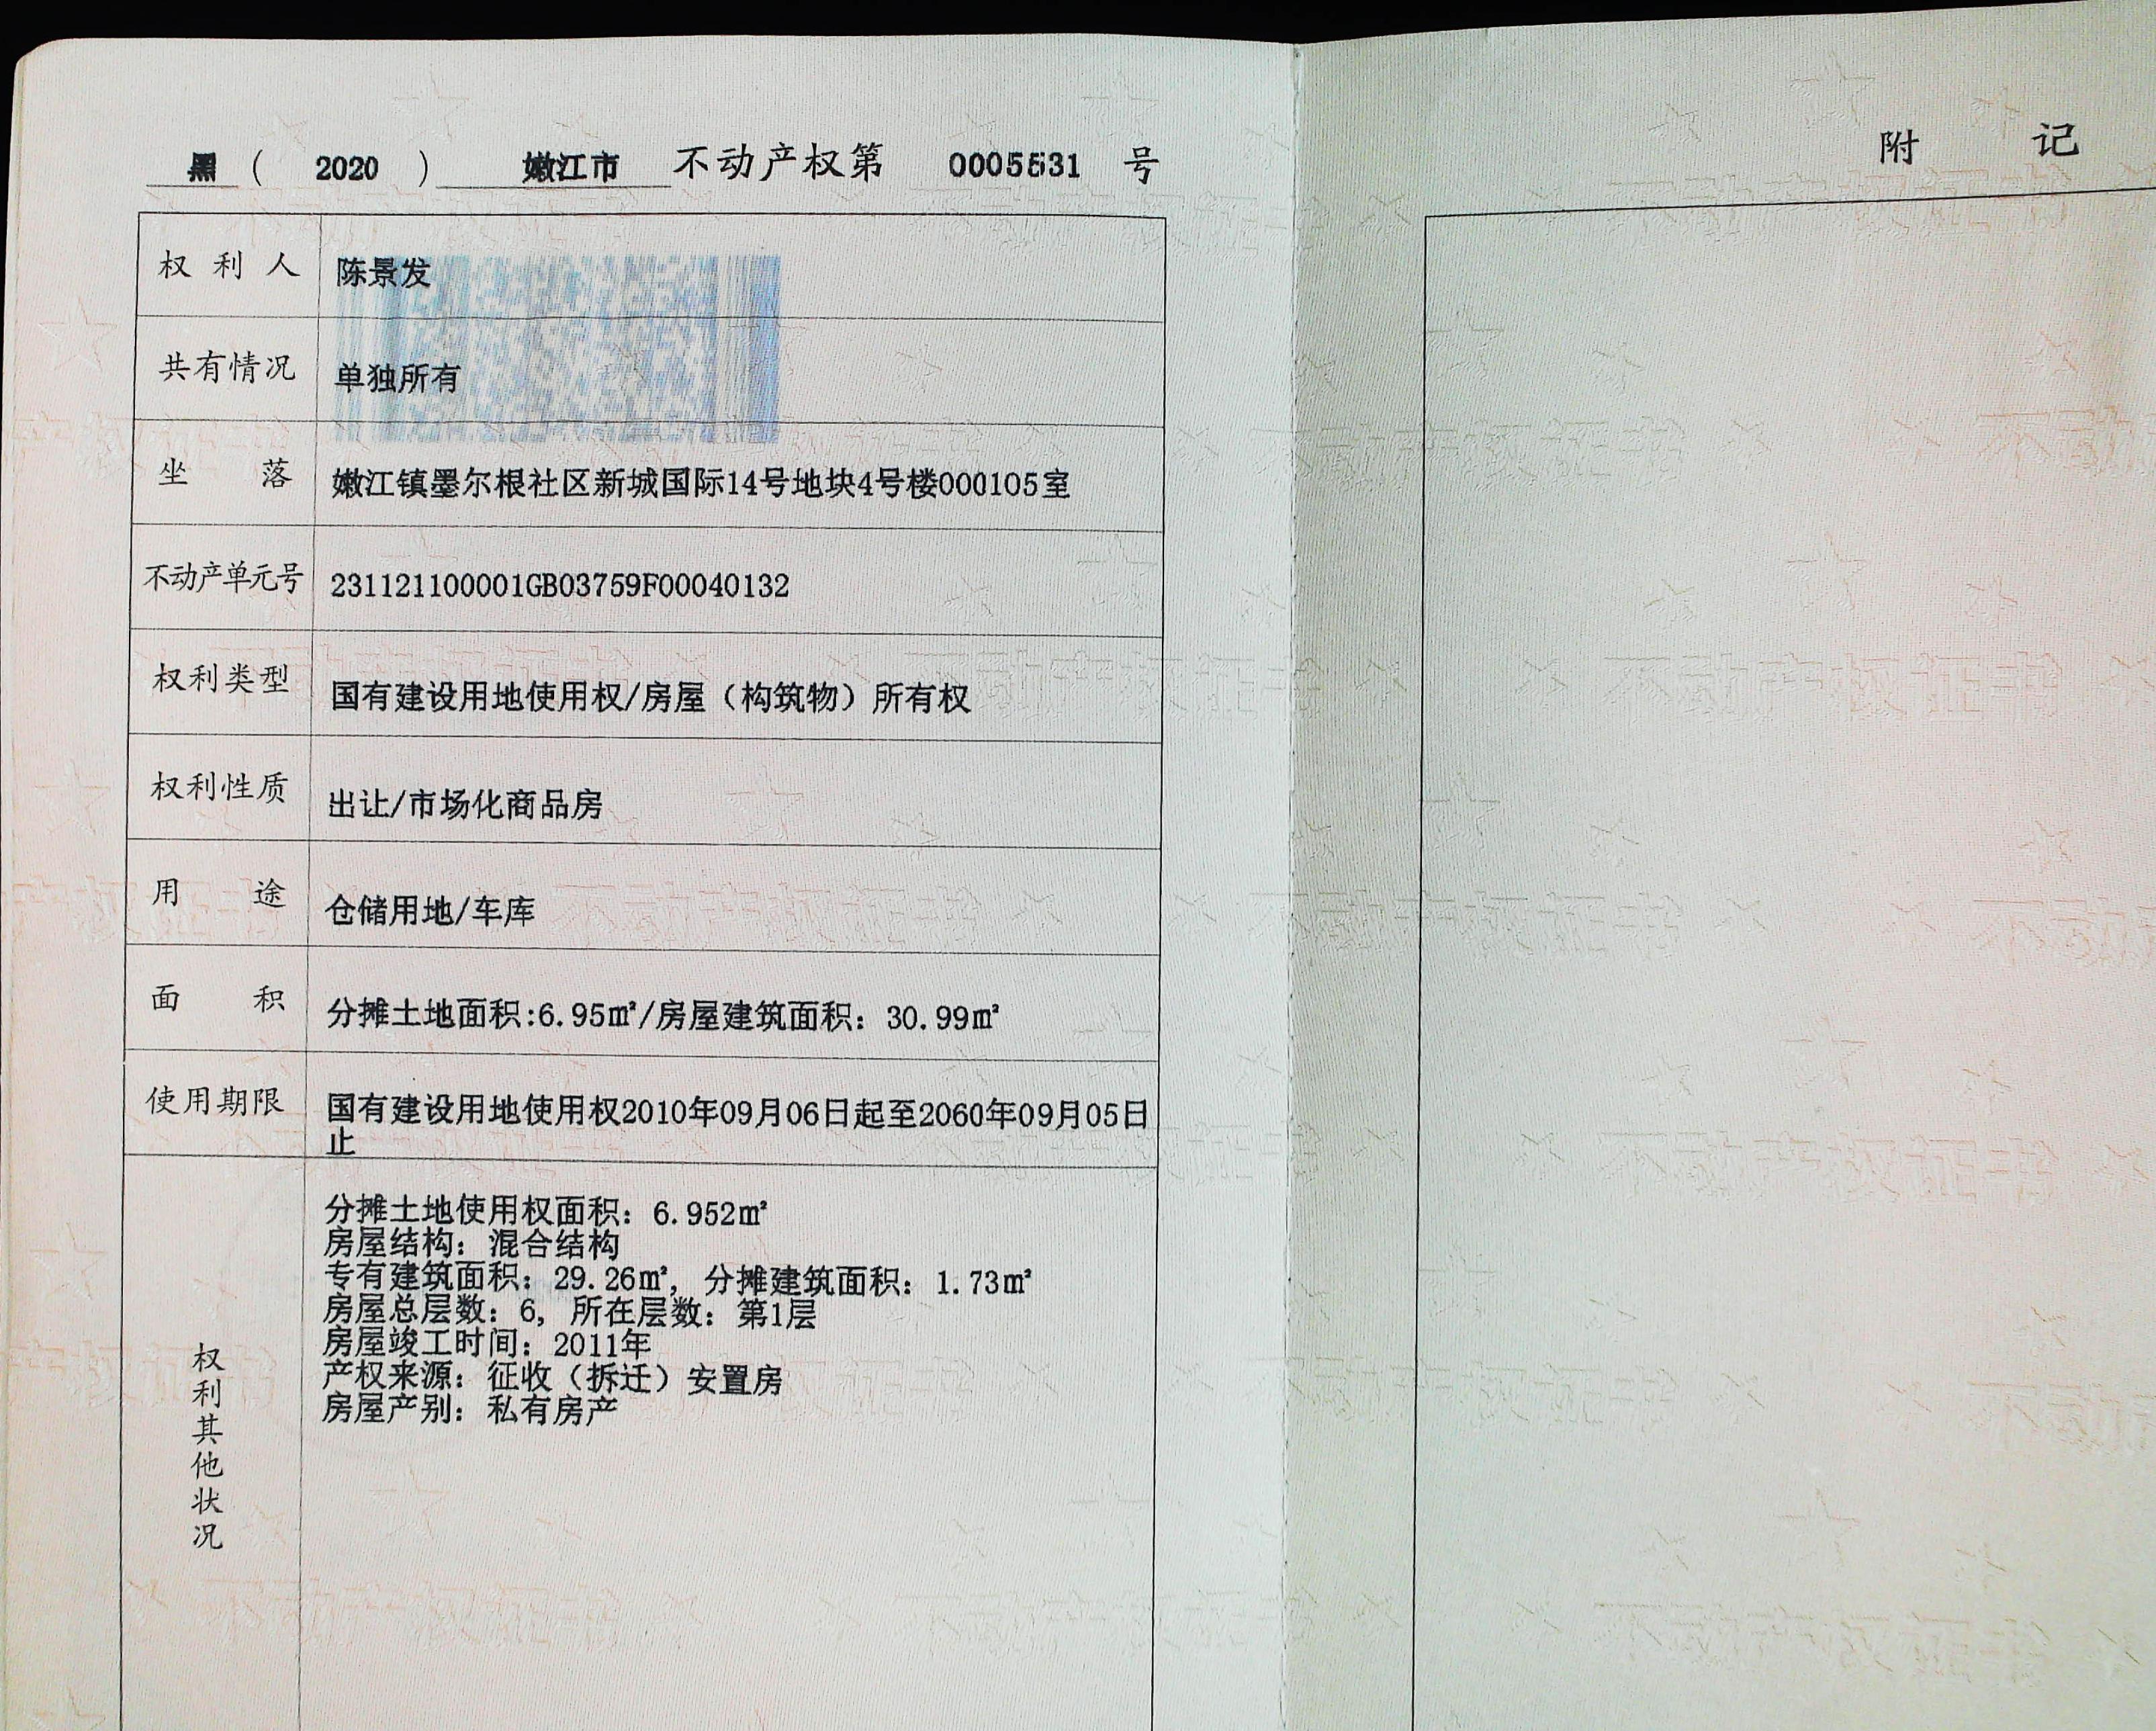 黑（ 2020 ） 嫩江市 不动产权第 0005531 号
权利人 陈景发
共有情况 单独所有
坐落 嫩江镇墨尔根社区新城国际14号地块4号楼000105室
不动产单元号 231121100001GB03759F00040132
权利类型 国有建设用地使用权/房屋（构筑物）所有权
权利性质 出让/市场化商品房
用途 仓储用地/车库
面积 分摊土地面积:6.95㎡/房屋建筑面积：30.99㎡
使用期限 国有建设用地使用权2010年09月06日起至2060年09月05日
止
权利其他状况
分摊土地使用权面积：6.952㎡
房屋结构：混合结构
专有建筑面积：29.26㎡，分摊建筑面积：1.73㎡
房屋总层数：6，所在层数：第1层
房屋竣工时间：2011年
产权来源：征收（拆迁）安置房
房屋产别：私有房产
附记